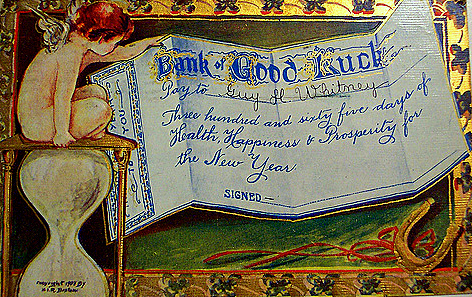 Bank of Good Luck
Pay to Guy H. Whitney
Three hundred and sixty five days of
Health, Happiness & Prosperity for
the New Year.
SIGNED—
TO YOU
Copyright 1909 By